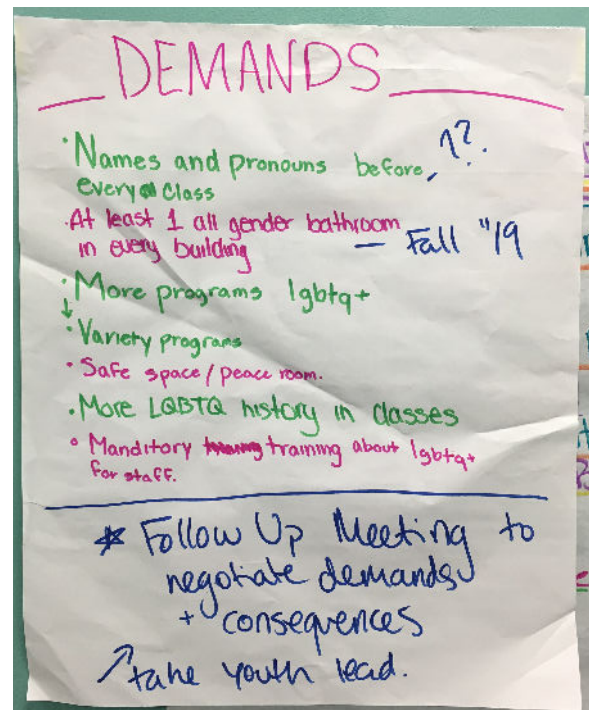 DEMANDS
· Names and pronouns before, 1?.
every class
· At least 1 all gender bathroom
in every building — Fall "19
· More programs lgbtq+
↓
· Variety programs
· Safe space / peace room.
· More LGBTQ history in classes
· Manditory training about lgbtq+
for staff.
* Follow Up Meeting to
negotiate demands
+ consequences
↗ take youth lead.